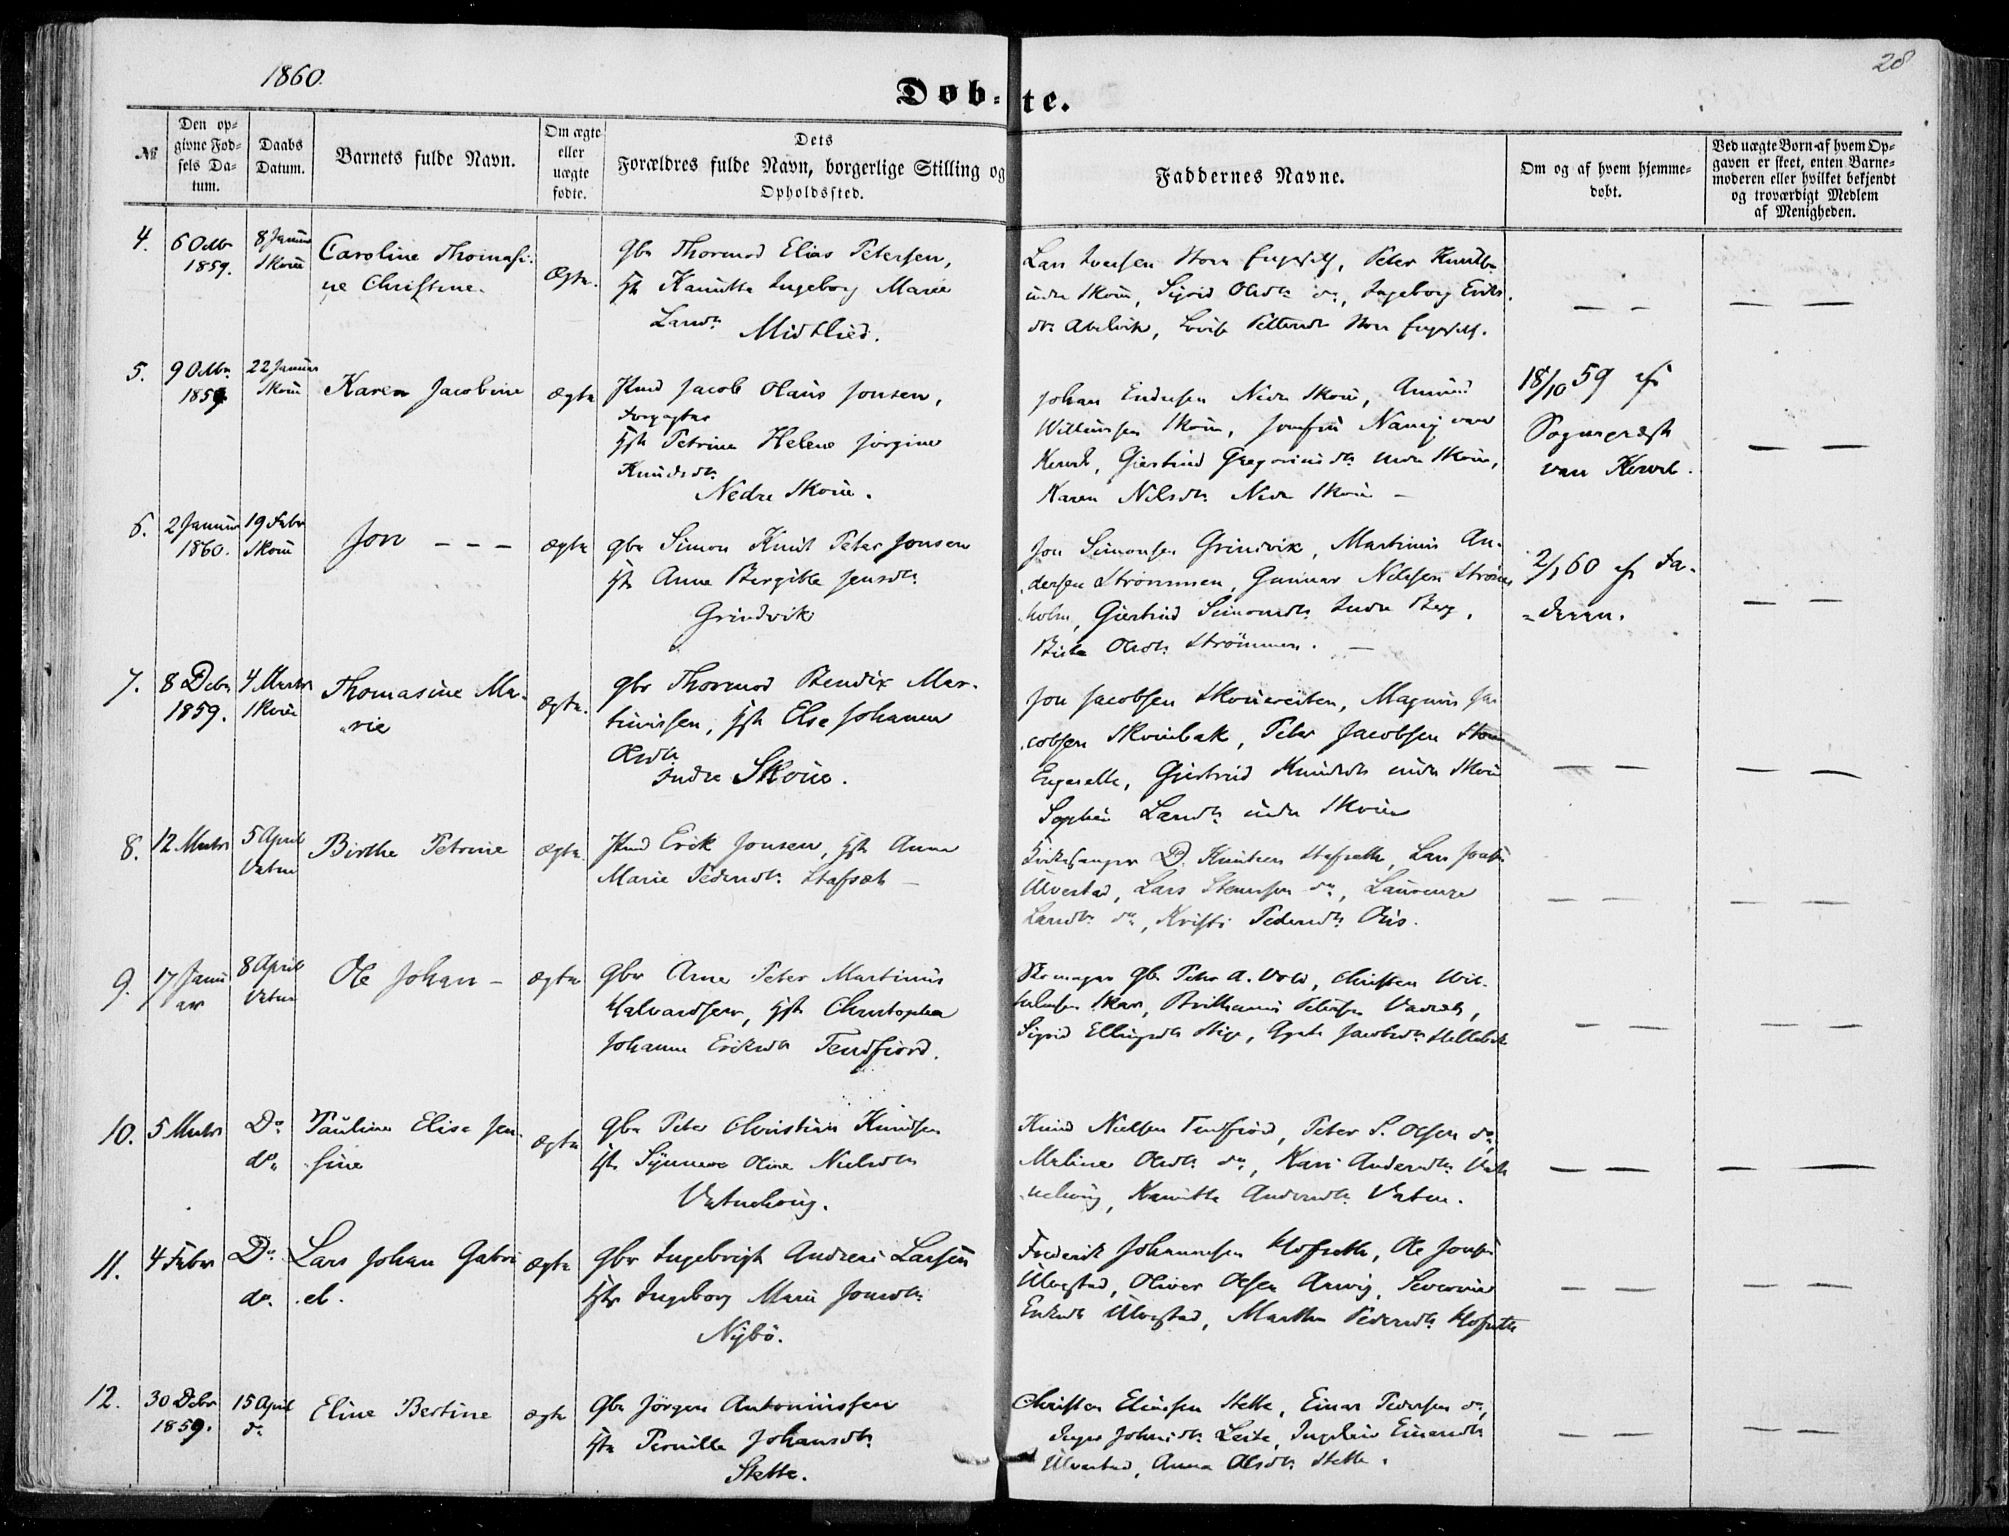 1860.
28
Døb-te.
№
Den op-
givne Fød-
sels Da-
tum.
Daabs
Datum.
Barnets fulde Navn.
Om ægte
eller
uægte
fødte.
Dets
Forældres fulde Navn, borgerlige Stilling og
Opholdssted.
Faddernes Navne.
Om og af hvem hjemme-
døbt.
Ved uægte Børn-af hvem Op-
gaven er skeet, enten Barne-
moderen eller hvilket bekjendt
og troværdigt Medlem
af Menigheden.
4.
6 Octbr
1859.
8 Januar
Skoue
Caroline Thomasi-
ne Christine.
Ægte.
Gbr Thormod Elias Petersen,
Hst Kanutta Ingeborg Marie
Larsdtr
Midtlied.
Lars Iversen Store Engeset, Peter Knuds
indre Skoue, Sigrid Olsdtr do, Ingeborg Eriks
dtr Abelvik, Lovise Store Engeset.
— —
— —
5.
9 Octbr
1859
22 Januar
Skoue
Karen Jacobine
ægte
Hmd Jacob Olaus Jonsen,
Hst Petrine Helene Jørgine
Knudsdtr
Nedre Skoue.
Johan Endresen Nedre Skoue, Amund
Skoue,
Giertrud Gregoriusdtr nedre Skoue,
Karen Nilsdtr Nedre Skoue —
18/10 59 af
Sognepræst
van Kervel.
— —
6.
2 Januar
1860.
19 Febr
Skoue
Jon - - -
ægte
gbr Simon Knut Peter Jonsen
Hst Anne Bergitte Jensdtr
Grindvik
Jon Simonsen Grindvik, Martinus An-
dersen Strømmen, Gunnar Nilssen Strøms
holm, Giertrud Simonsdtr Indre Berg,
Olsdtr Strømmen. —
2/1 60 af Fa-
deren.
— —
7.
8 Decbr
1859.
4 Marts
Skoue
Thomasine Ma-
rie
ægte.
gbr Thormod Bendix Mar-
tinussen, Hst Else Johanne
Olsdtr
Indre Skoue.
Jon Jacobsen Skouereiten, Magnus Ja
cobsen Skouebak, Peter Jacobsen Store
Engesette, Giertrud Knudsdtr indre Skoue
Sophie Larsdtr indre Skoue
— —
— —
8.
12 Marts
5 April
Vatne
Birthe Petrine
ægte
Hmd Erik Jonsen, Hst Anne
Marie Pedersdtr Stafset —
Kirkesanger D. Knutsen Stafsette, Lars Jonsen
Ulvestad, Lars Steensen do, Laurenze
Larsdtr do, Kristi Pedersdtr Øiis.
— —
— —
9.
17 Janu
ar
8 April
Vatne
Ole Johan —
ægte
gbr Arne Peter Martinus
Halvardsen, Hst Christophea
Johanne Eriksdtr Tenfjord.
Skomager Gbr Peter A. Vold, Christen Wil-
helmsen Skar, Petersen
Sigrid Ellingsdtr Stige, Jacobsdtr Hellebak
— —
— —
10.
5 Marts
Do
do
Pauline Elise Jen-
sine
ægte
Gbr Peter Christian Knudsen
Hst Synneva Oline Nielsdtr
Vatnehoug.
Knud Nielsen Tenfjord, Peter S. Olsen do,
Meline Olsdtr do, Kari Andersdtr Vat
nehoug, Kanutte Andersdtr Vatne.
— —
— —
11.
4 Febr
Do
do.
Lars Johan Gabri
el.
ægte
Gbr Ingebrigt Andreas Larsen
Hst Ingeborg Marie Jonsdtr
Nybø.
Frederik Johannesen Hofsette, Ole Jonsen
Ulvestad, Oliver Olsen Arvig, Severine
Eriksdtr Ulvestad, Marthe Pedersdtr Hofsette
— —
— —
12.
30 Decbr
1859.
15 April
do
Eline Bertine
ægte
Gbr Jørgen Antoniussen
Hst Pernille Johansdtr
Stette.
Christen Eliassen Stette, Einar Pedersen do,
Inger Johnsdtr Leite, Einersdtr
Ulvestad, Anna Olsdtr Stette.
— —
— —